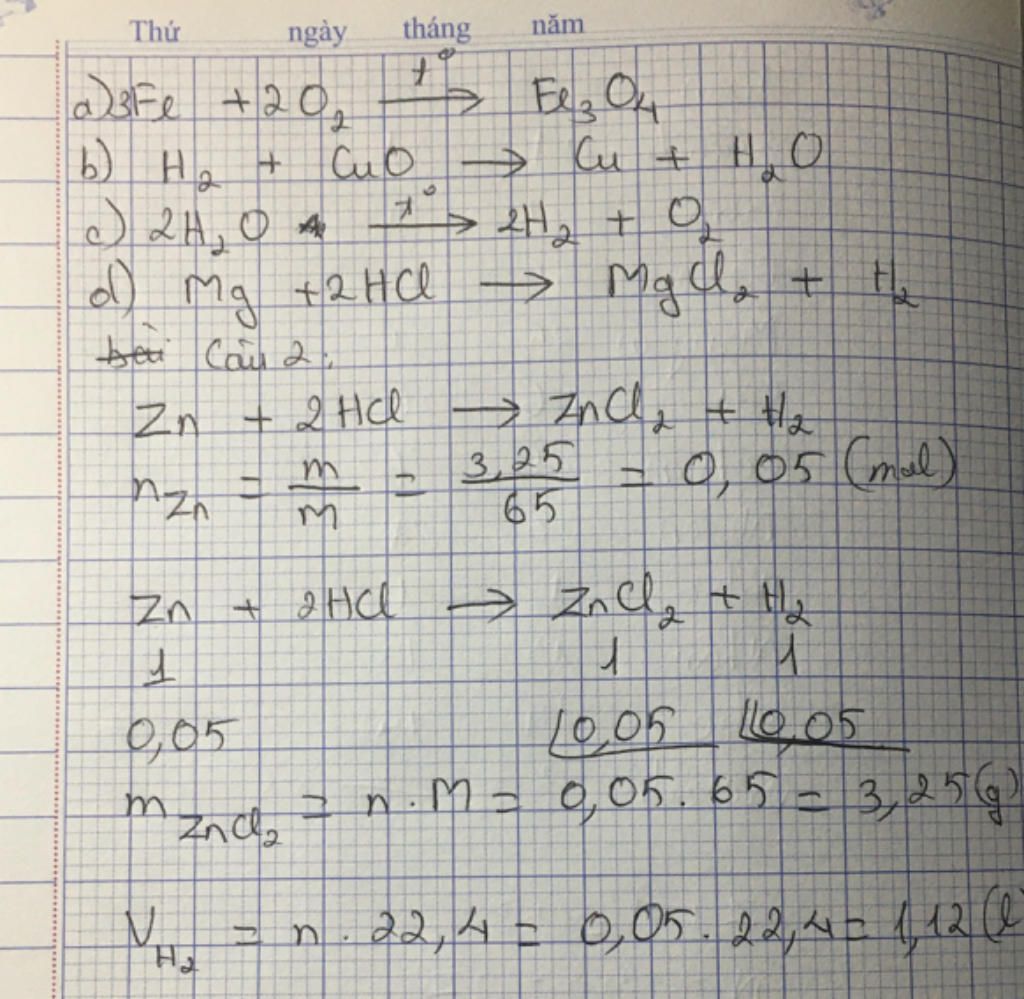 Thứ ngày tháng năm
a) 3Fe + 2O₂ —t°→ Fe₃O₄
b) H₂ + CuO → Cu + H₂O
c) 2H₂O —t°→ 2H₂ + O₂
d) Mg + 2HCl → MgCl₂ + H₂
bài Câu 2:
Zn + 2HCl → ZnCl₂ + H₂
n_Zn = m/m = 3,25/65 = 0,05 (mol)
Zn + 2HCl → ZnCl₂ + H₂
1 1 1
0,05 0,05 0,05
m ZnCl₂ = n . M = 0,05 . 65 = 3,25 (g)
V_H₂ = n . 22,4 = 0,05 . 22,4 = 1,12 (l